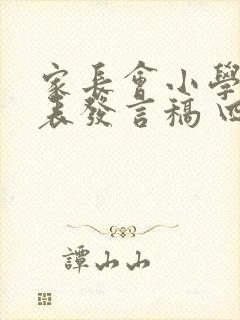 家長會小學
表發言稿
譚山山